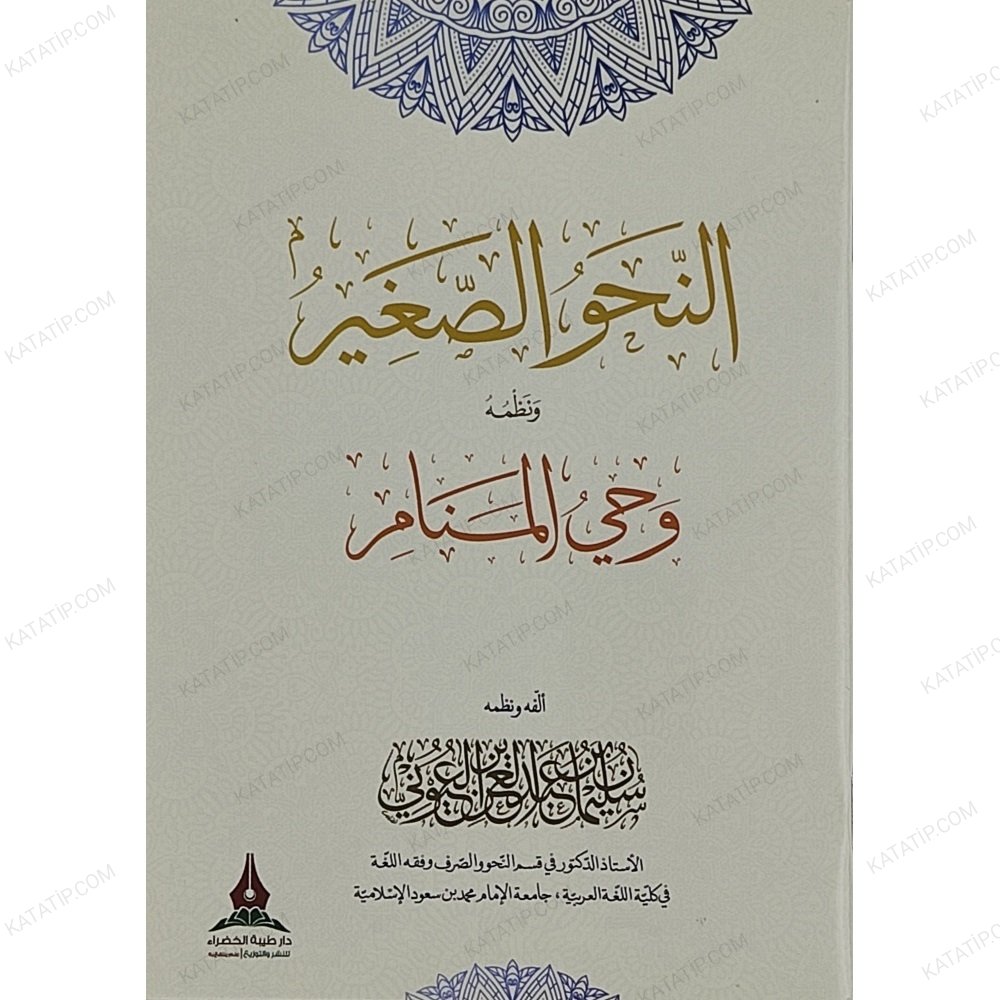 النَّحْوُ الصَّغِيرُ
وَنَظْمُهُ
وَحْيُ الْمَنَامِ
ألّفه ونظمه
سُلَيْمَانُ بْنُ عَبْدِ الْعَزِيزِ بْنِ الْعُيُونِيّ
الأستاذ الدّكتور في قسم النّحو والصّرف وفقه اللّغة
في كليّة اللّغة العربيّة، جامعة الإمام محمد بن سعود الإسلاميّة
دار طيبة الخضراء
للنشر والتوزيع
KATATİP.COM